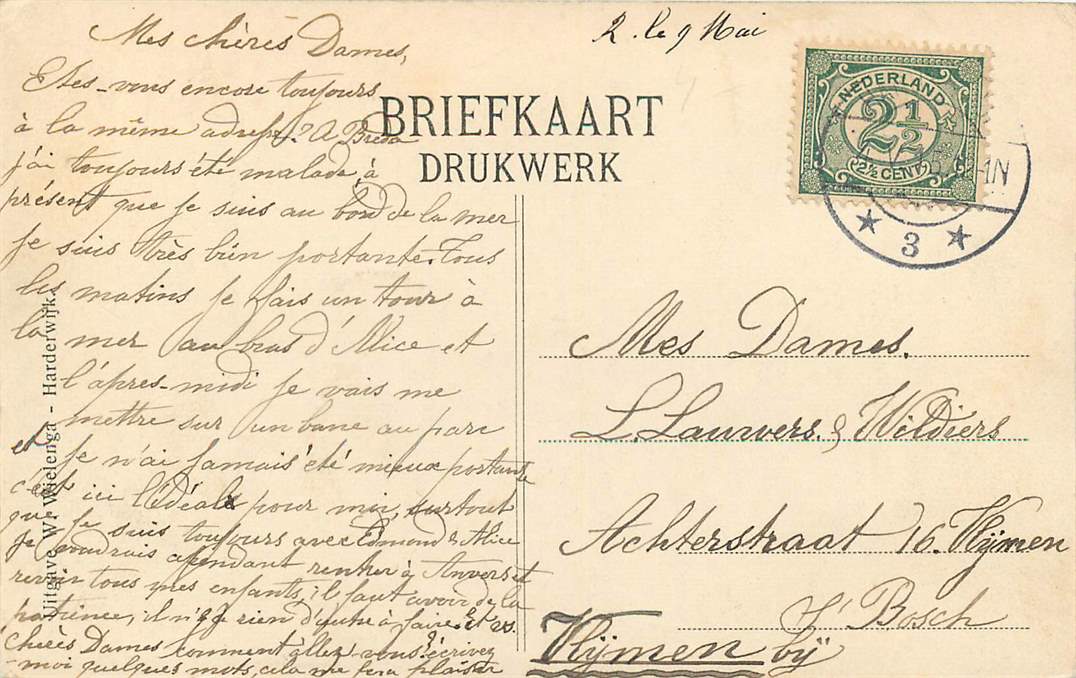 2. le 9 Mai
Mes chères Dames,
Etes-vous encore toujours
à la même adress? A Breda
j'ai toujours été malade, à
présent que je suis au bord de la mer
je suis très bien portante. Tous
les matins je fais un tour à
la mer au bras d'Alice et
l'après-midi je vais me
mettre sur un banc au parc
et je n'ai jamais été mieux portante
c'est ici l'idéale pour moi, surtout
que je suis toujours avec Edmond & Alice
je voudrais cependant rentrer à Anvers et
revoir tous mes enfants, il faut avoir de la
patience, il n'y a rien d'autre à faire. Et vs.
chères Dames comment allez-vous? écrivez
-moi quelques mots, cela me fera plaisir
BRIEFKAART
DRUKWERK
NEDERLAND
2 1/2
2½ CENT
1N
3
Uitgave W. Wielenga - Harderwijk.
Mes Dames.
L. Lauwers & Wildiers
Achterstraat 16. Vlijmen
s' Bosch
Vlijmen bij